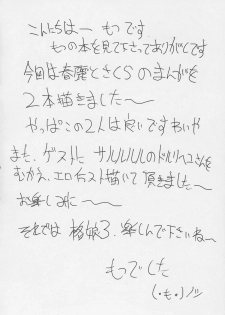 こんにちはー もっです
もっの本を見て下さってありがとです
今回は春麗とさくらのまんがを
２本描きました〜
やっぱこの２人は良いですわいや
また、ゲストに サルルルルのドルリヘさんを
むかえ、エロイラスト描いて頂きました〜
お楽しみに〜
それでは 格娘３、楽しんで下さいね〜
もっでした
(・も・)ノシ